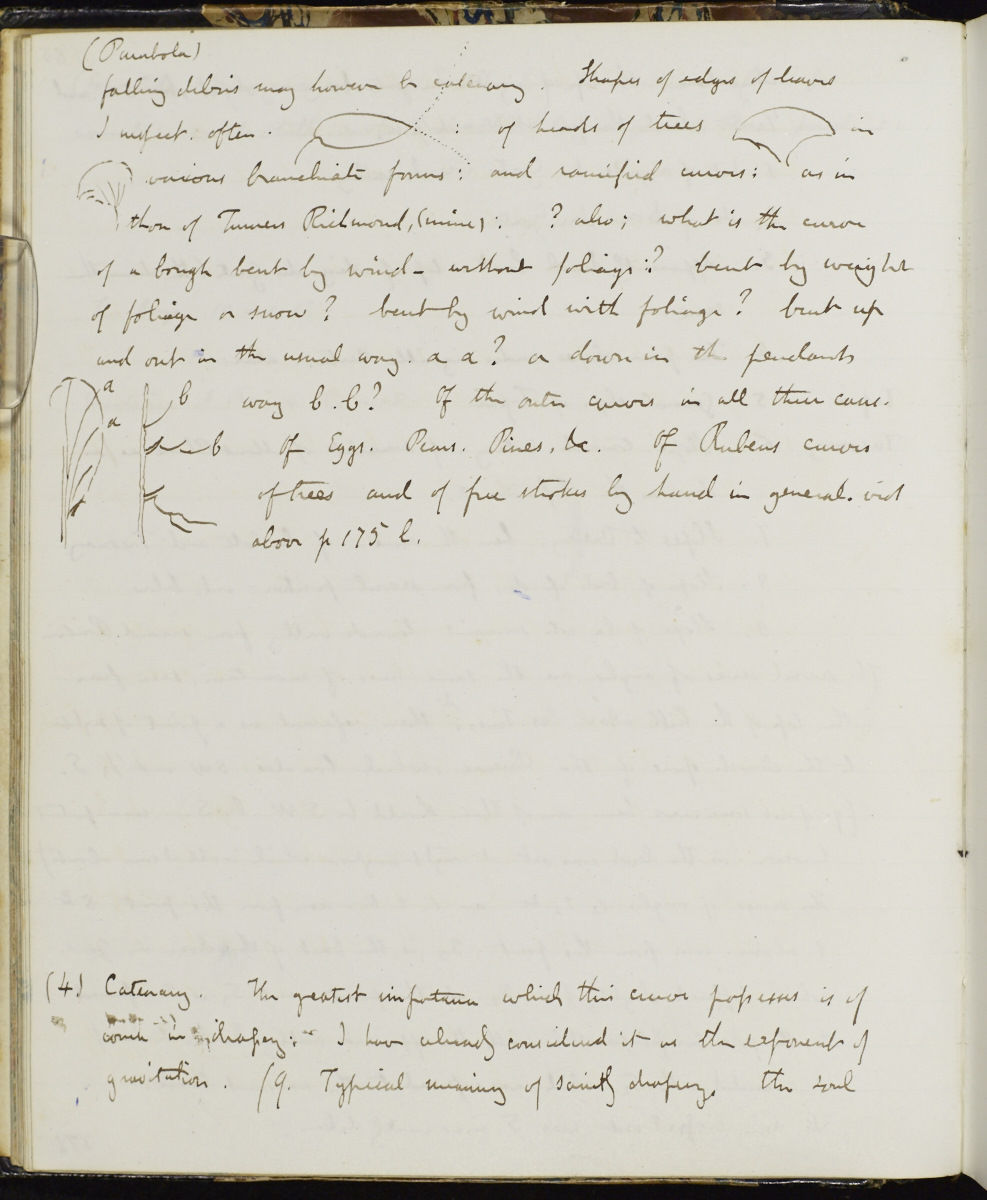 (Parabola)
falling debris may however be catenary. Shapes of edges of leaves
I suspect. often. : of heads of trees in
various branchiate forms: and ramified curves: as in
those of Turners Richmond, (mine): ? also; what is the curve
of a bough bent by wind - without foliage:? bent by weight
of foliage or snow? bent by wind with foliage? bent up
and out in the usual way a a? or down in the pendants
a b way b.b? Of the outer curves in all these cases.
a b Of Eggs. Pears. Pines, &c. Of Rubens curves
of trees and of free strokes by hand in general. vid
above p 175 l.
(4) Catenary. The greatest importance which this curve possesses is of
course in drapery: I have already considered it as the exponent of
gravitation. (q. Typical meaning of saintly drapery, the soul